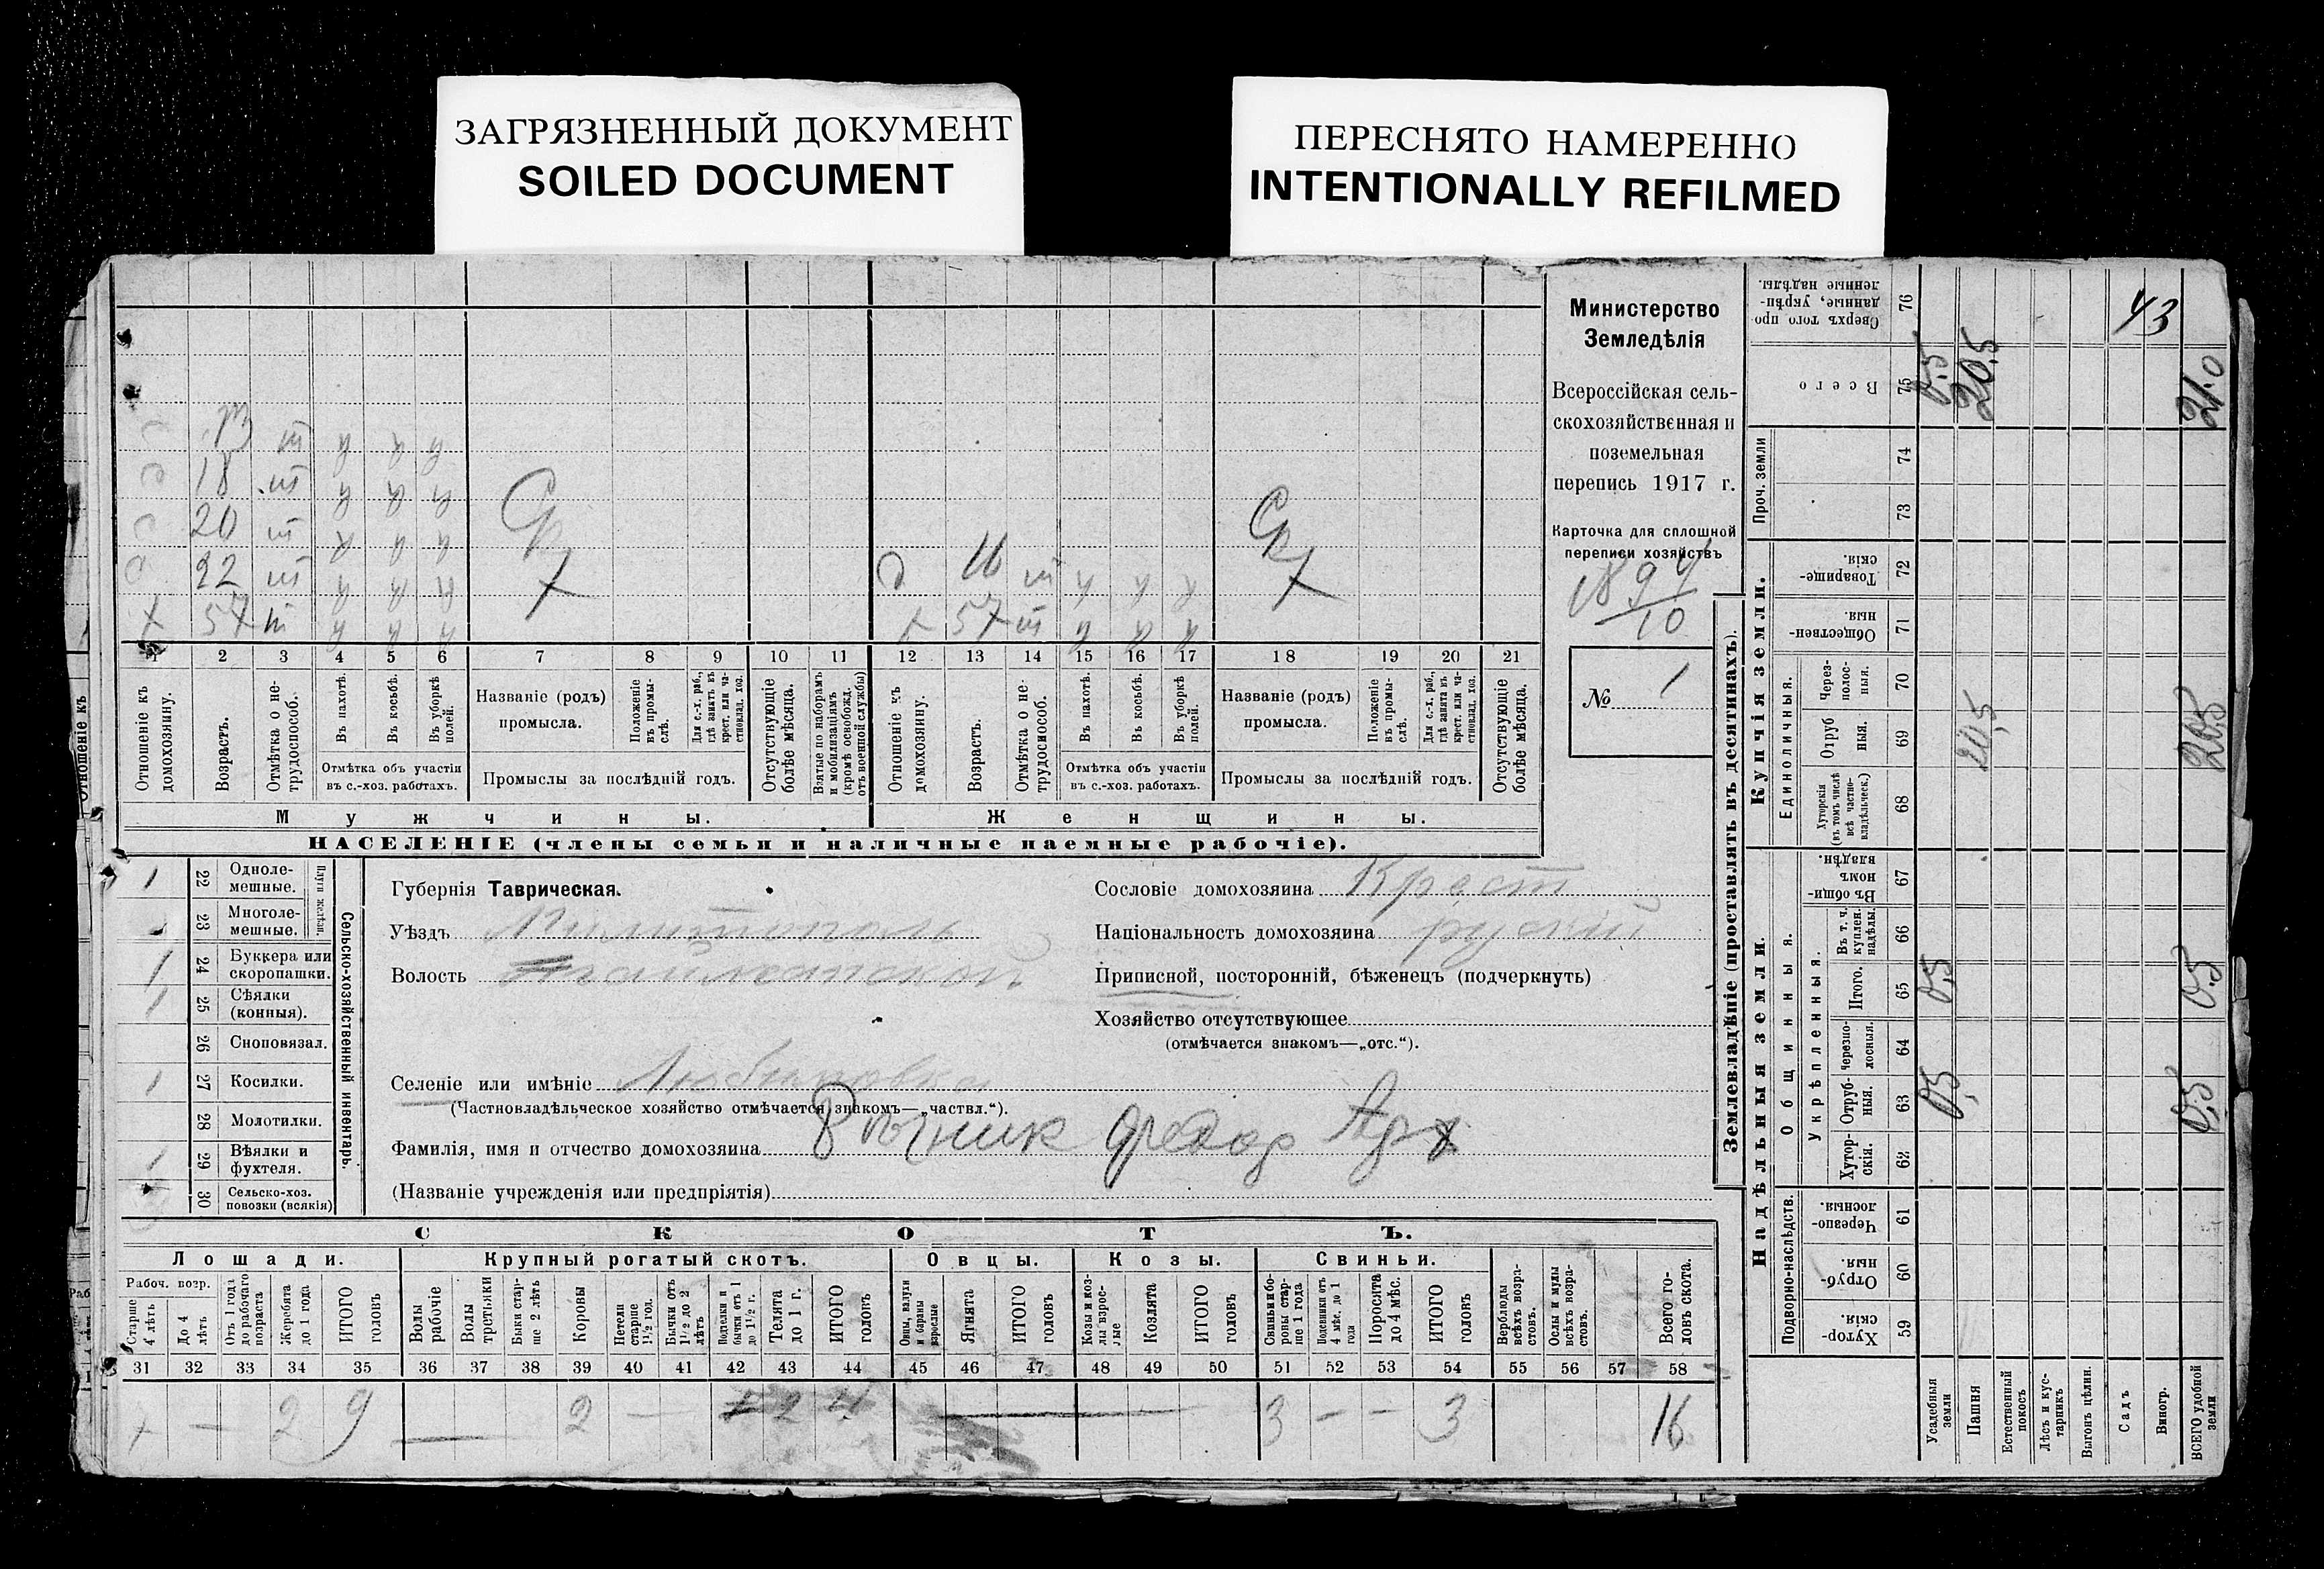 ЗАГРЯЗНЕННЫЙ ДОКУМЕНТ
SOILED DOCUMENT
ПЕРЕСНЯТО НАМЕРЕННО
INTENTIONALLY REFILMED
Министерство
Земледѣлія
Всероссійская сель-
скохозяйственная и
поземельная
перепись 1917 г.
Карточка для сплошной
переписи хозяйствъ
№ 1
18
20
22
57
57
1 2 3 4 5 6 7 8 9 10 11 12 13 14 15 16 17 18 19 20 21
Отношеніе къ домохозяину.
Возрастъ.
Отмѣтка о не-трудоспособ.
Въ пахотѣ.
Въ косьбѣ.
Въ уборкѣ полей.
Отмѣтка объ участіи
въ с.-хоз. работахъ.
Названіе (родъ)
промысла.
Положеніе въ промы-слѣ.
Для с.-х. раб., гдѣ занятъ въ крест. или ча-стновлад. хоз.
Промыслы за послѣдній годъ.
Отсутствующіе болѣе мѣсяца.
Взятые по наборамъ и мобилизаціямъ (кромѣ освобожд. отъ военной службы)
Отношеніе къ домохозяину.
Возрастъ.
Отмѣтка о не-трудоспособ.
Въ пахотѣ.
Въ косьбѣ.
Въ уборкѣ полей.
Отмѣтка объ участіи
въ с.-хоз. работахъ.
Названіе (родъ)
промысла.
Положеніе въ промы-слѣ.
Для с.-х. раб., гдѣ занята въ крест. или ча-стновлад. хоз.
Промыслы за послѣдній годъ.
Отсутствующіе болѣе мѣсяца.
Мужчины.
Женщины.
НАСЕЛЕНІЕ (члены семьи и наличные наемные рабочіе).
Сельско-хозяйственный инвентарь.
Плуги желѣзн.
1 22 Однолемешные.
23 Многолемешные.
1 24 Буккера или скоропашки.
1 25 Сѣялки (конныя).
26 Сноповязал.
1 27 Косилки.
28 Молотилки.
1 29 Вѣялки и фухтеля.
30 Сельско-хоз. повозки (всякія)
Губернія Таврическая.
Уѣздъ
Волость
Селеніе или имѣніе Любимовка
(Частновладѣльческое хозяйство отмѣчается знакомъ—„частвл.“).
Фамилія, имя и отчество домохозяина Федор
(Названіе учрежденія или предпріятія)
Сословіе домохозяина Крест
Національность домохозяина руский
Приписной, посторонній, бѣженецъ (подчеркнуть)
Хозяйство отсутствующее
(отмѣчается знакомъ—„отс.“).
СКОТЪ.
Лошади.
Крупный рогатый скотъ.
Овцы.
Козы.
Свиньи.
Рабоч. возр.
Старше 4 лѣтъ
До 4 лѣтъ
Отъ 1 года до рабочаго возраста
Жеребята до 1 года
ИТОГО головъ
Волы рабочіе
Волы третьяки
Быки стар-ше 2 лѣтъ
Коровы
Нетели старше 1½ год.
Бычки отъ 1½ до 2 лѣтъ
Водтелки и бычки отъ 1 до 1½ г.
Телята до 1 г.
ИТОГО головъ
Овцы, валухи и бараны взрослые
Ягнята
ИТОГО головъ
Козы и коз-лы взрос-лые
Козлята
ИТОГО головъ
Свиньи и бо-ровы стар-ше 1 года
Подсвинки отъ 4 мѣс. до 1 года
Поросята до 4 мѣс.
ИТОГО головъ
Верблюды всѣхъ возра-стовъ.
Ослы и мулы всѣхъ возра-стовъ.
Всего го-ловъ скота.
31 32 33 34 35 36 37 38 39 40 41 42 43 44 45 46 47 48 49 50 51 52 53 54 55 56 57 58
— 2 9 — 2 — 2 4 — 3 — — 3 16
Землевладѣніе (проставлять въ десятинахъ).
Надѣльныя земли.
Купчія земли.
Проч. земли
Подворно-наслѣдств.
Общинныя.
Укрѣпленныя.
Единоличныя.
Хутор-скія. 59
Отруб-ныя. 60
Черезпо-лосныя. 61
Хутор-скія. 62
Отруб-ныя. 63
черезпо-лосныя. 64
Итого. 65
Въ т. ч. куплен. надѣлы. 66
Въ общи-номъ владѣн. 67
Хуторскія (въ томъ числѣ всѣ частно-владѣльческ.) 68
Отрубныя. 69
Через-полос-ныя. 70
Обществен-ныя 71
Товарище-скія. 72
73
74
Всего 75
Сверхъ того про-данные, укрѣп-ленные надѣлы. 76
Усадебныя земли
Пашня
Естественный покосъ
Лѣсъ и кус-тарникъ
Выгонъ цѣлин.
Садъ
Виногр.
ВСЕГО удобной земли
0,5 0,5
0,5 0,5
20,5 20,5
0,5 20,5 21.0
43